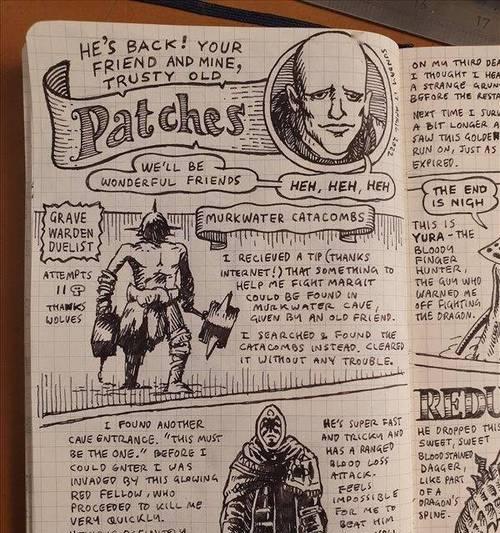 HE'S BACK! YOUR
FRIEND AND MINE,
TRUSTY OLD
Patches
SUNDAY 17 APRIL 2022
WE'LL BE
WONDERFUL FRIENDS
HEH, HEH, HEH
GRAVE
WARDEN
DUELIST
ATTEMPTS
11
THANKS
WOLVES
MURKWATER CATACOMBS
I RECIEVED A TIP (THANKS
INTERNET!) THAT SOMETHING TO
HELP ME FIGHT MARGIT
COULD BE FOUND IN
MURKWATER CAVE,
GIVEN BY AN OLD FRIEND.
I SEARCHED & FOUND THE
CATACOMBS INSTEAD. CLEARED
IT WITHOUT ANY TROUBLE.
I FOUND ANOTHER
CAVE ENTRANCE. "THIS MUST
BE THE ONE." BEFORE I
COULD ENTER I WAS
INVADED BY THIS GLOWING
RED FELLOW, WHO
PROCEEDED TO KILL ME
VERY QUICKLY.
HE'S SUPER FAST
AND TRICKY AND
HAS A RANGED
BLOOD LOSS
ATTACK.
FEELS
IMPOSSIBLE
FOR ME TO
BEAT HIM
ON MY THIRD
I THOUGHT I
A STRANGE
BEFORE THE
NEXT TIME I
A BIT LONGER
SAW THIS GOLDEN
RUN ON, JUST AS
EXPIRED.
THE END
IS NIGH
THIS IS
YURA - THE
BLOODY
FINGER
HUNTER,
THE GUY WHO
WARNED ME
OFF FIGHTING
THE DRAGON.
HE DROPPED THIS
SWEET, SWEET
BLOODSTAINED
DAGGER,
LIKE PART
OF A
DRAGON'S
SPINE.
17